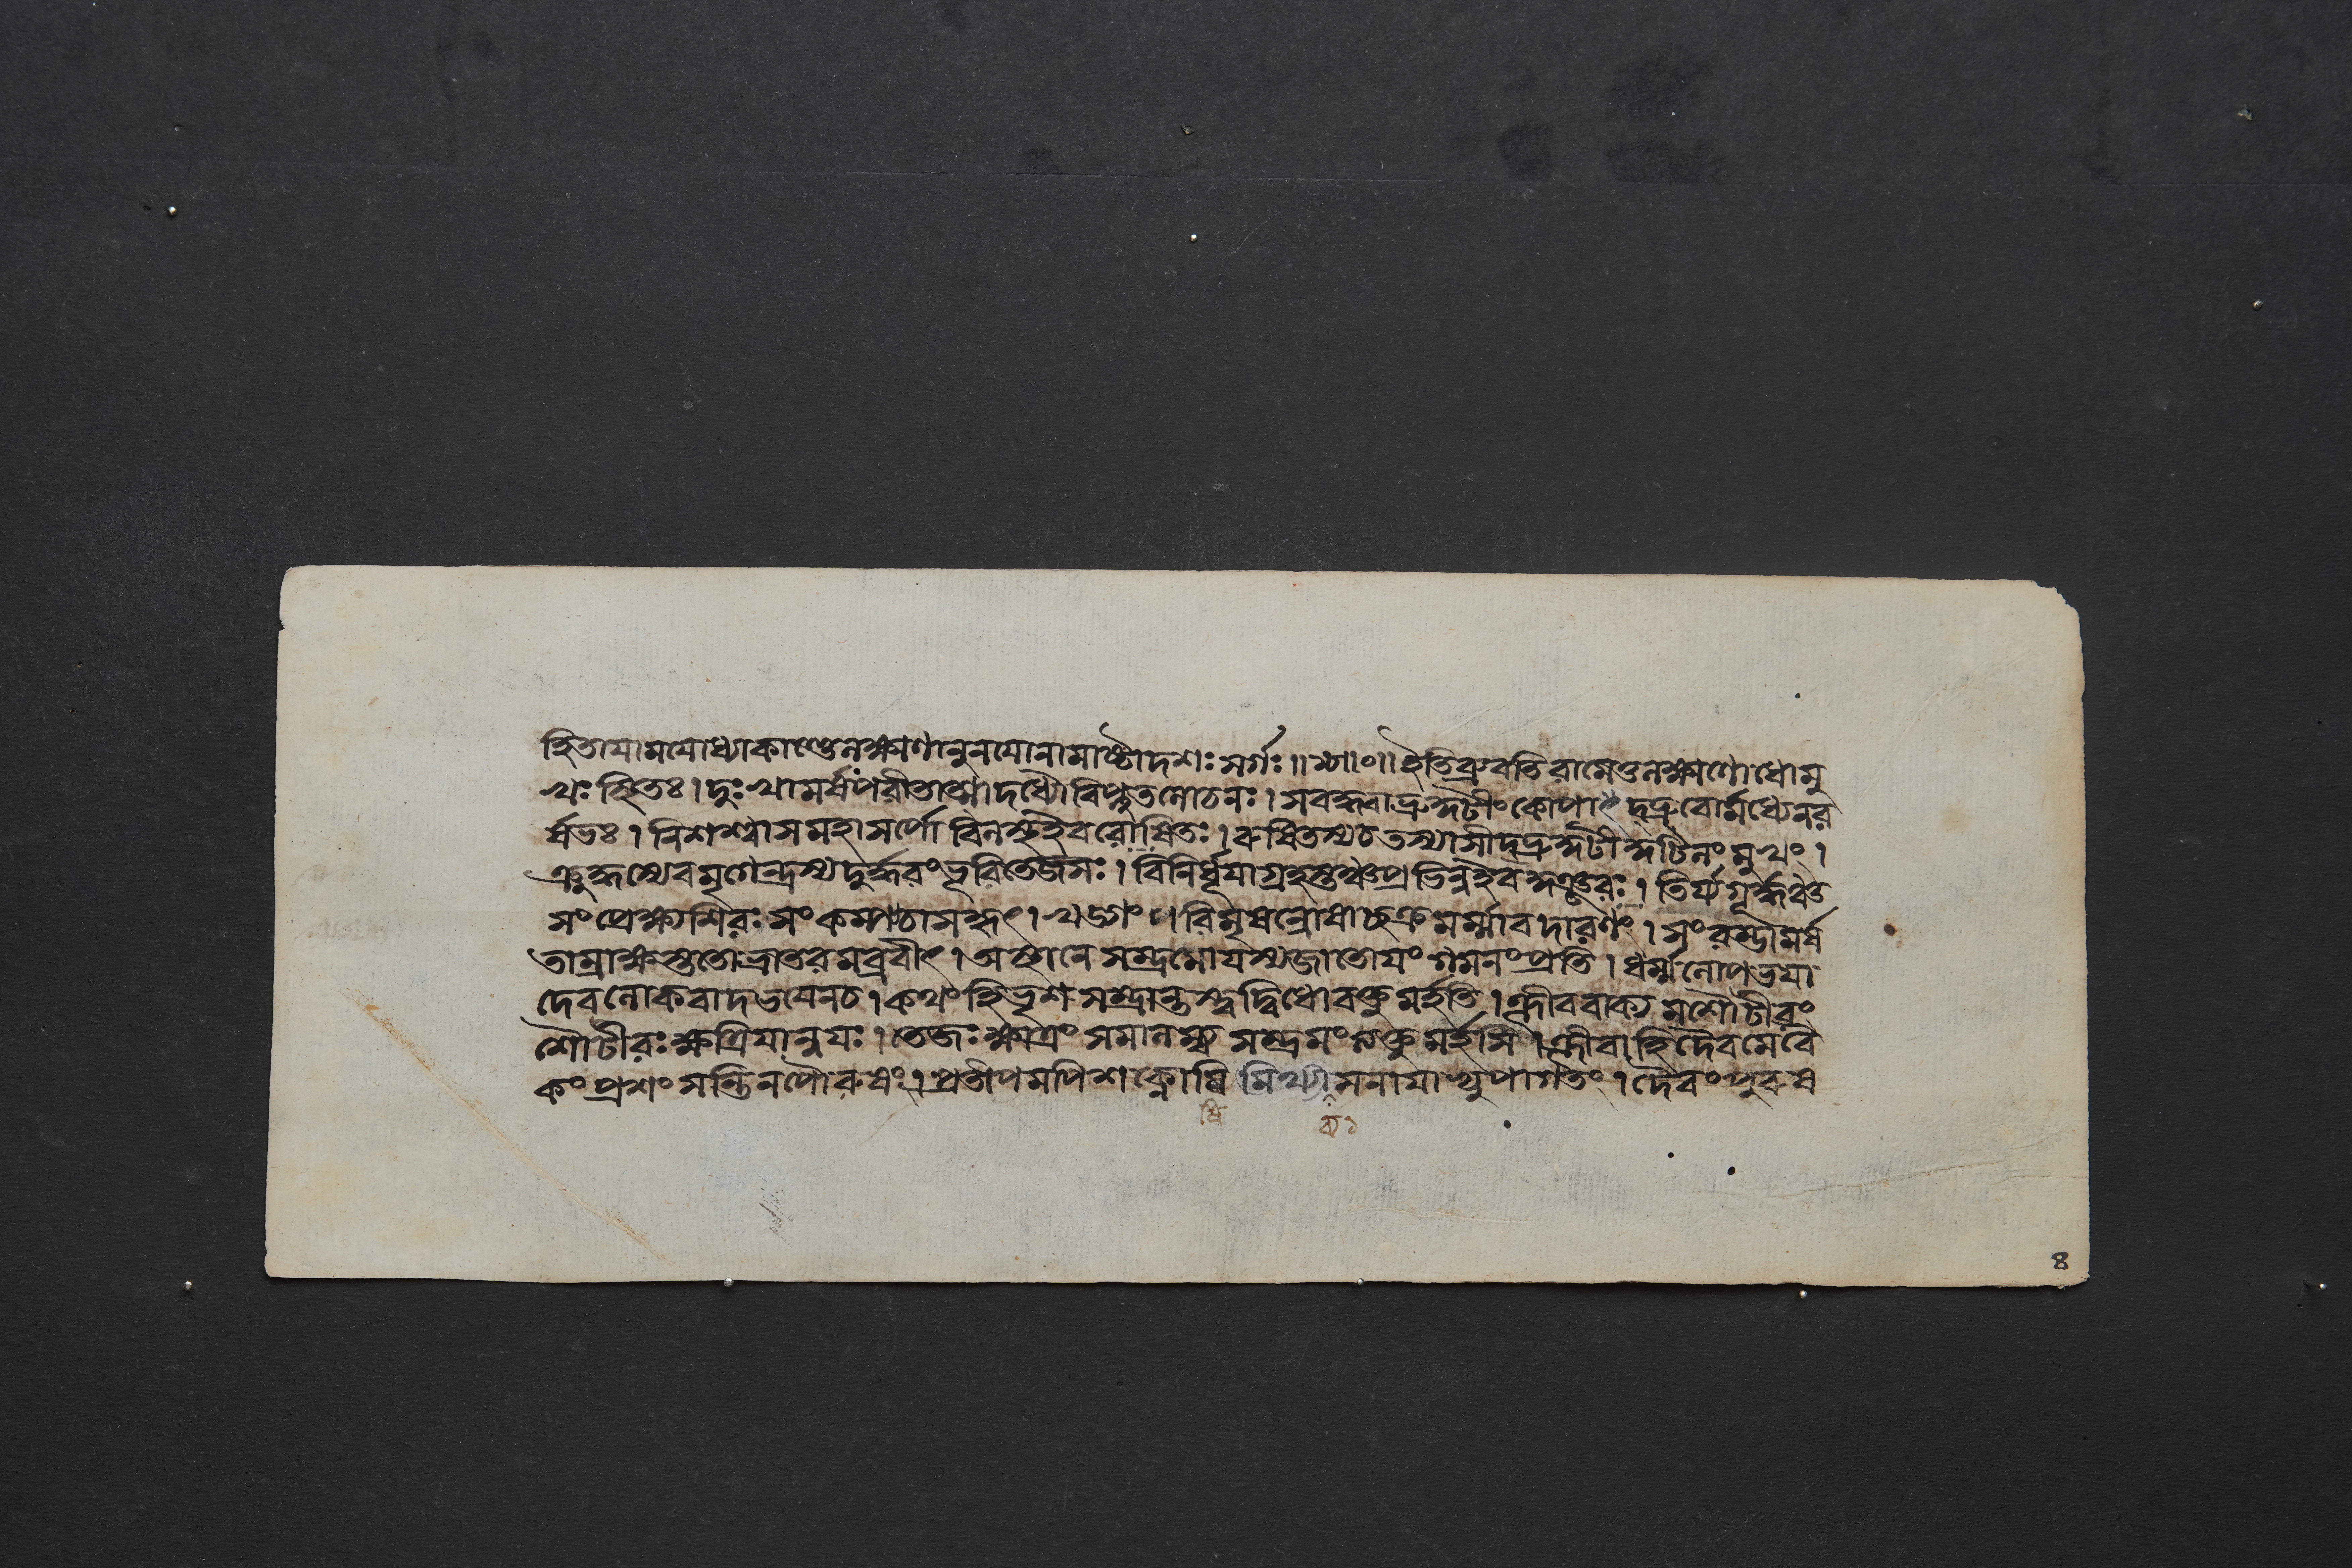 হিতাযামযোধ্যাকাণ্ডেলক্ষ্মণানুনযোনামাষ্টাদশঃ সর্গঃ॥ ॥০॥ইতিব্রুবতিরামেতুলক্ষ্মণোধোমু
খঃ স্থিতঃ। দুঃখামর্ষপরীতাত্মাদধ্যৌবিপ্লুতলোচনঃ। সবদ্ধ্বাভ্রুকুটীং কোপাৎ দ্ভ্রুবোর্মধ্যেনর
র্ষভঃ। নিশশ্বাসমহাসর্পো বিলস্থইবরোষিতঃ। রুষিতস্যচতস্যাসীদ্ভ্রুকুটীকুটিলং মুখং।
ক্রুদ্ধস্যেবমৃগেন্দ্রস্যদুর্দ্ধরং ভূরিতেজসঃ। বিনির্ধূযাগ্রহস্তঞ্চপ্রভিন্নইবকুঞ্জরঃ। তির্য্যগূর্দ্ধঞ্চ
সংপ্রেক্ষ্যশিরঃ সংকম্প্যচাসকৃৎ। খড্গং॥ বিমৃষন্রোষাচ্ছত্রুমর্ম্মাবদারণং। সংরম্ভামর্ষ
তাম্রাক্ষস্ততোভ্রাতরমব্রবীৎ। অস্থানে সম্ভ্রমোযস্যজাতোযং গমনং প্রতি। ধর্ম্মলোপভযা
দেবলোকবাদভযেনচ। কথং হিভৃশসম্ভ্রান্তস্ত্বদ্বিধোবক্তুমর্হতি। ক্লীববাক্যমশৌটীরং
শৌটীরঃ ক্ষত্রিযান্বযঃ। তেজঃ ক্ষাত্রং সমালম্ব্য সম্ভ্রমং ত্যক্তুমর্হসি। ক্লীবাহিদৈবমেবৈ
কং প্রশংসন্তিনপৌরুষং। প্রতীপমপিশক্নোষি মিথ্যা সনাযাভ্যুপাগতং। দৈবং পুরুষ
8